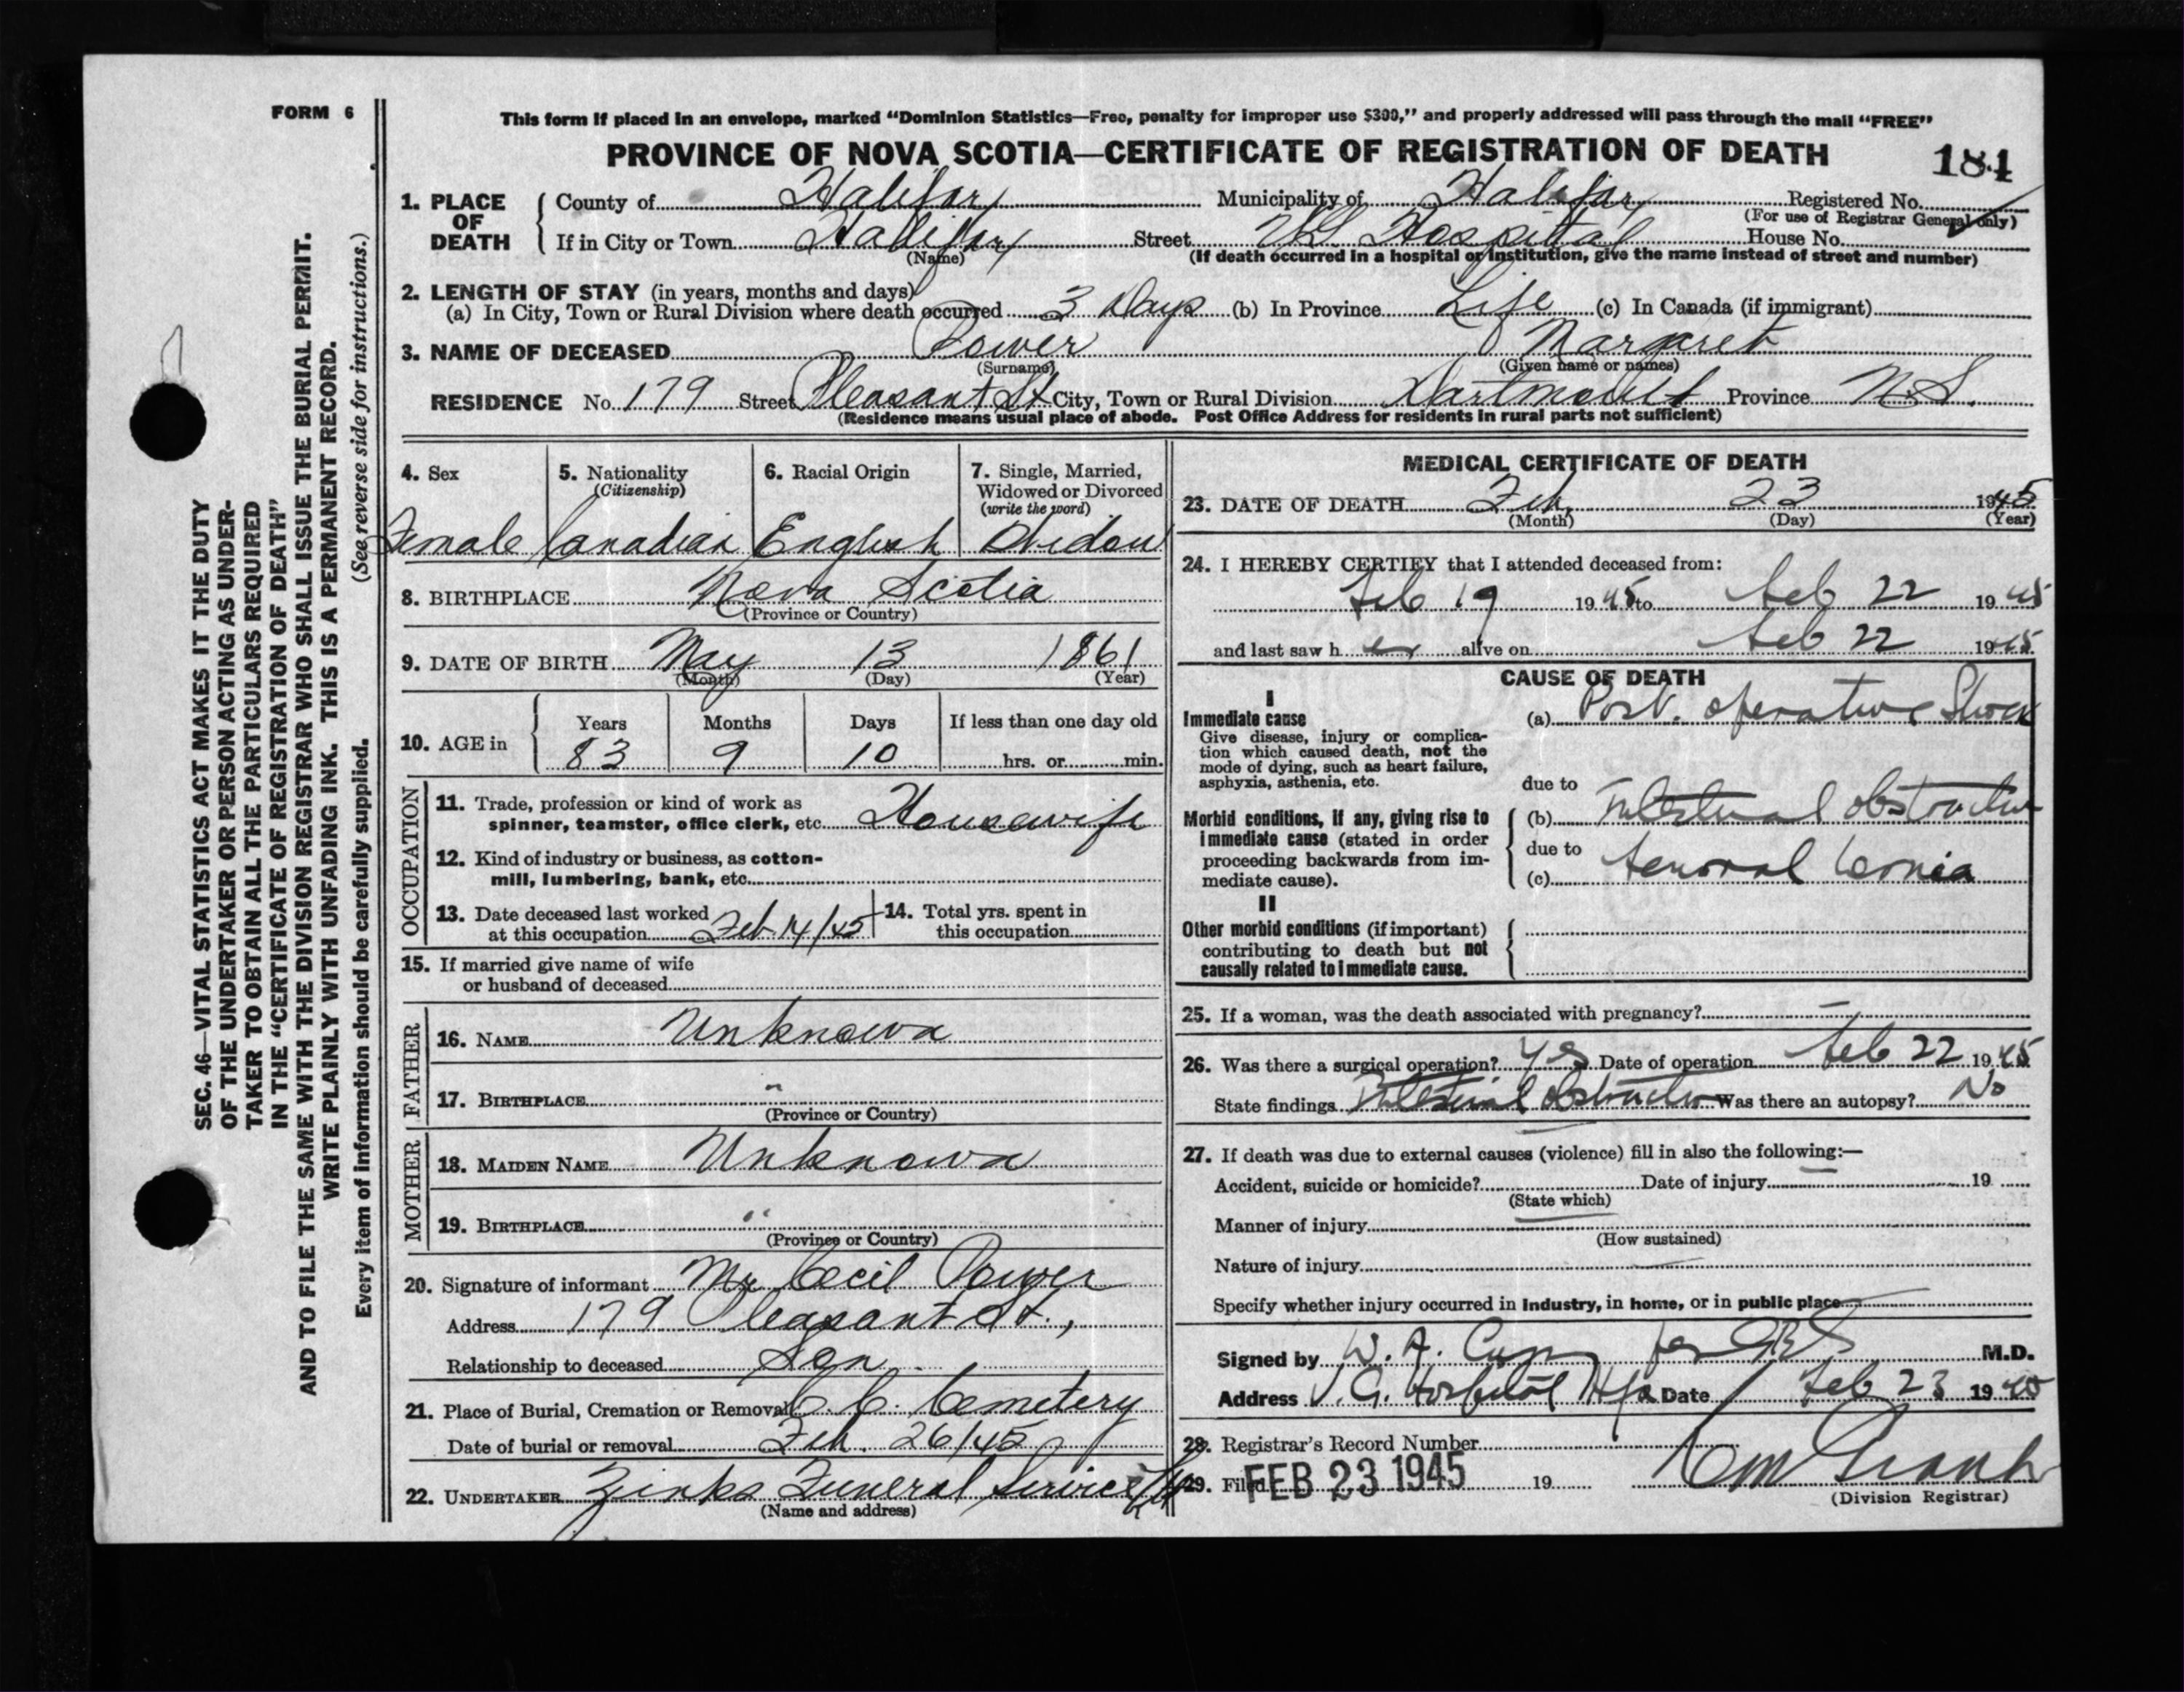 FORM 6
This form if placed in an envelope, marked "Dominion Statistics—Free, penalty for improper use $300," and properly addressed will pass through the mail "FREE"
PROVINCE OF NOVA SCOTIA—CERTIFICATE OF REGISTRATION OF DEATH
184
1. PLACE OF DEATH
County of Halifax Municipality of Halifax Registered No.
(For use of Registrar General only)
If in City or Town Halifax Street VG Hospital House No.
(Name) (If death occurred in a hospital or institution, give the name instead of street and number)
2. LENGTH OF STAY (in years, months and days)
(a) In City, Town or Rural Division where death occurred 3 Days (b) In Province Life (c) In Canada (if immigrant)
3. NAME OF DECEASED Power Margaret
(Surname) (Given name or names)
RESIDENCE No. 179 Street Pleasant St City, Town or Rural Division Dartmouth Province N.S.
(Residence means usual place of abode. Post Office Address for residents in rural parts not sufficient)
4. Sex 5. Nationality 6. Racial Origin 7. Single, Married,
(Citizenship) Widowed or Divorced
(write the word)
Female Canadian English Widow
8. BIRTHPLACE Nova Scotia
(Province or Country)
9. DATE OF BIRTH May 13 1861
(Month) (Day) (Year)
Years Months Days If less than one day old
10. AGE in 83 9 10 hrs. or min.
OCCUPATION
11. Trade, profession or kind of work as
spinner, teamster, office clerk, etc. Housewife
12. Kind of industry or business, as cotton-
mill, lumbering, bank, etc.
13. Date deceased last worked 14. Total yrs. spent in
at this occupation Feb 14/45 this occupation
15. If married give name of wife
or husband of deceased
FATHER
16. NAME Unknown
17. BIRTHPLACE "
(Province or Country)
MOTHER
18. MAIDEN NAME Unknown
19. BIRTHPLACE "
(Province or Country)
20. Signature of informant Mr Cecil Power
Address 179 Pleasant St.,
Relationship to deceased Son
21. Place of Burial, Cremation or Removal C. C. Cemetery
Date of burial or removal Feb. 26/45
22. UNDERTAKER Zinks Funeral Service
(Name and address)
MEDICAL CERTIFICATE OF DEATH
23. DATE OF DEATH Feb. 23 1945
(Month) (Day) (Year)
24. I HEREBY CERTIFY that I attended deceased from:
Feb 19 1945 to Feb 22 1945
and last saw her alive on Feb 22 1945
CAUSE OF DEATH
I
Immediate cause (a) Post. operative Shock
Give disease, injury or complica-
tion which caused death, not the
mode of dying, such as heart failure,
asphyxia, asthenia, etc.
due to
Morbid conditions, if any, giving rise to (b) Intestinal obstruction
immediate cause (stated in order due to
proceeding backwards from im-
mediate cause). (c) femoral hernia
II
Other morbid conditions (if important)
contributing to death but not
causally related to immediate cause.
25. If a woman, was the death associated with pregnancy? —
26. Was there a surgical operation? Yes Date of operation Feb 22 1945
State findings Intestinal Obstruction Was there an autopsy? No
27. If death was due to external causes (violence) fill in also the following:—
Accident, suicide or homicide? Date of injury 19
(State which)
Manner of injury
(How sustained)
Nature of injury
Specify whether injury occurred in industry, in home, or in public place
Signed by W. A. for M.D.
Address V. G. Hospital Hfx Date Feb 23 1945
28. Registrar's Record Number
29. Filed FEB 23 1945 19
(Division Registrar)
SEC. 46—VITAL STATISTICS ACT MAKES IT THE DUTY
OF THE UNDERTAKER OR PERSON ACTING AS UNDER-
TAKER TO OBTAIN ALL THE PARTICULARS REQUIRED
IN THE "CERTIFICATE OF REGISTRATION OF DEATH"
AND TO FILE THE SAME WITH THE DIVISION REGISTRAR WHO SHALL ISSUE THE BURIAL PERMIT.
WRITE PLAINLY WITH UNFADING INK. THIS IS A PERMANENT RECORD.
Every item of information should be carefully supplied. (See reverse side for instructions.)